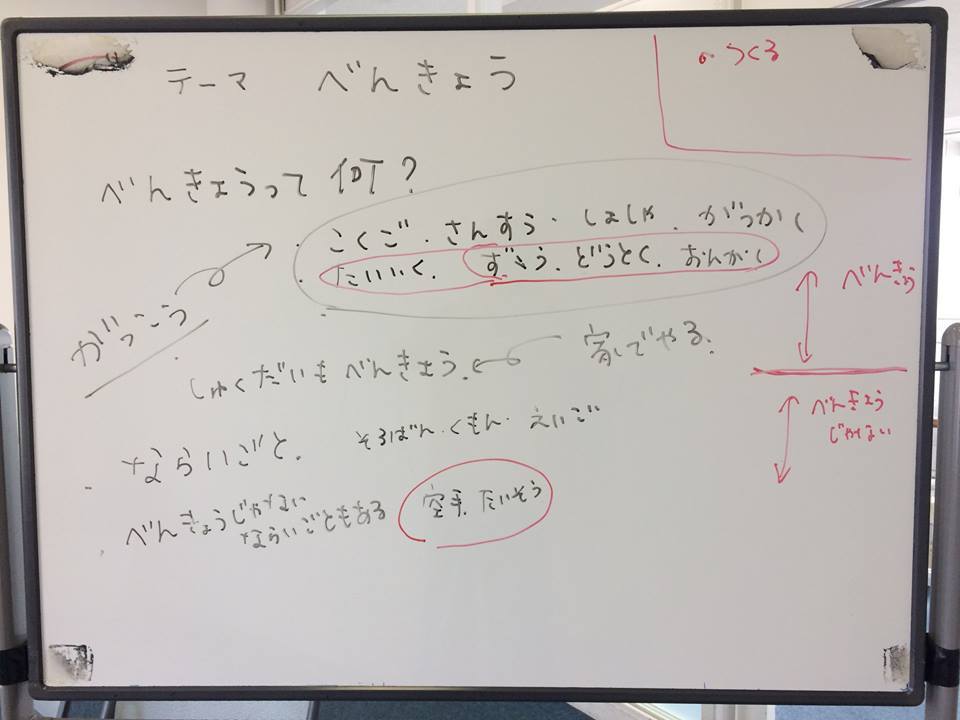 テーマ べんきょう
・つくる
べんきょうって何？
こくご・さんすう・しょしゃ・がっかく
たいいく・ずこう・どうとく・おんがく
がっこう
べんきょう
しゅくだいもべんきょう。
家でやる。
べんきょう
じゃない
ならいごと。
そろばん・くもん・えいご
べんきょうじゃない
ならいごともある
空手、たいそう